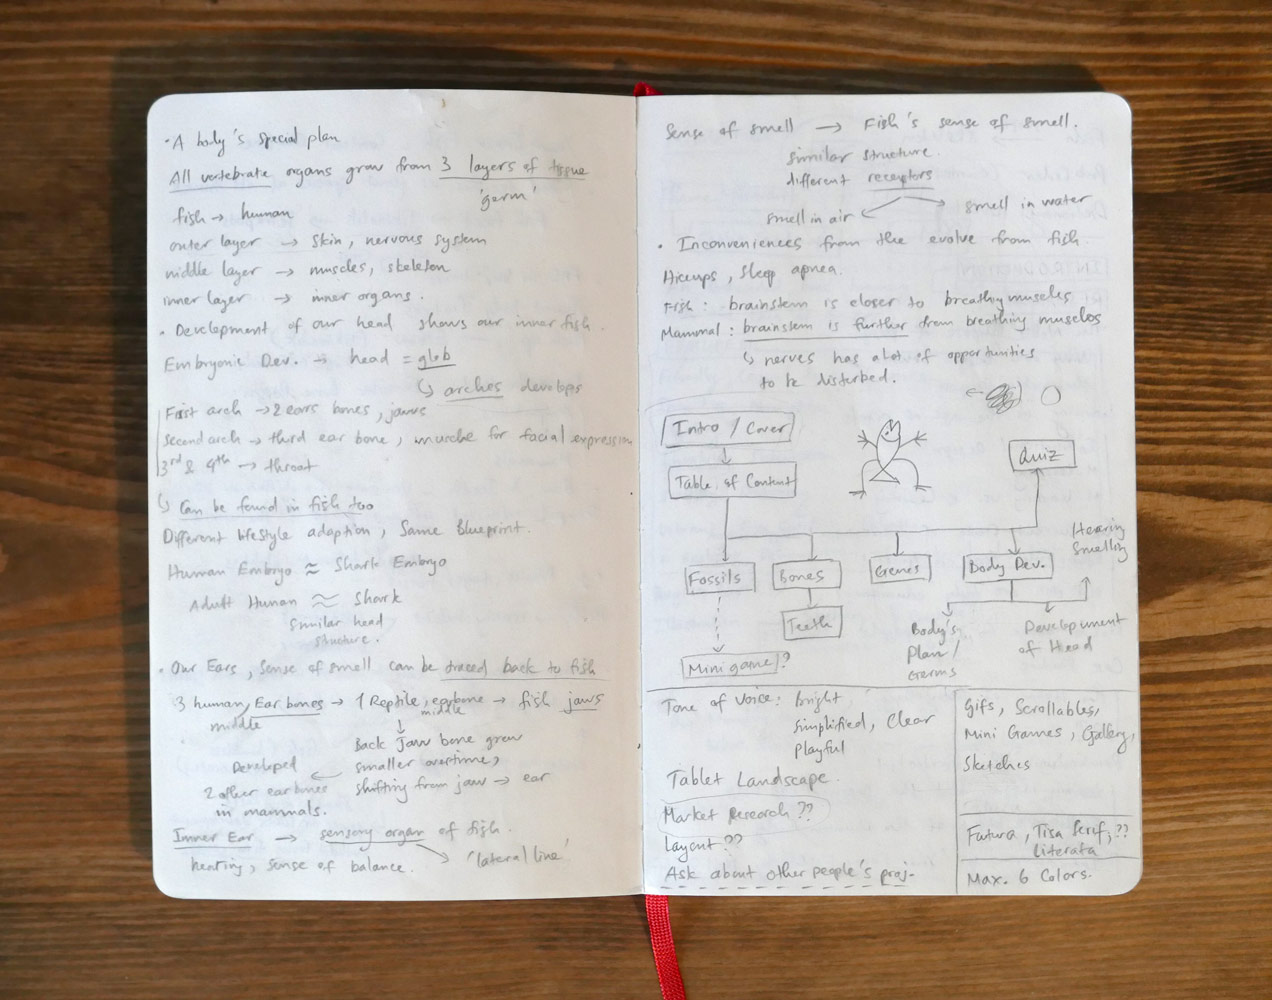 • A body's special plan
All vertebrate organs grow from 3 layers of tissue
'germ'
fish → human
outer layer → skin, nervous system
middle layer → muscles, skeleton
inner layer → inner organs.
• Development of our head shows our inner fish.
Embryonic Dev. → head = glob
↳ arches develops
First arch → 2 ears bones, jaws
Second arch → third ear bone, muscle for facial expression
3rd & 4th → throat
↳ Can be found in fish too
Different lifestyle adaption, Same blueprint.
Human Embryo ≈ Shark Embyo
Adult Human ≈ Shark
similar head
structure.
• Our Ears, sense of smell can be traced back to fish
3 human, Ear bones → 1 Reptile, ear bone → fish jaws
middle
middle
Back Jaw bone grew
smaller overtime,
shifting from jaw → ear
Developed
2 other ear bones
in mammals.
Inner Ear → sensory organ of fish.
hearing, sense of balance.
'lateral line'
Sense of smell → Fish's sense of smell.
similar structure
different receptors
smell in air
smell in water
• Inconveniences from the evolve from fish.
Hiccups, sleep apnea.
Fish: brainstem is closer to breathing muscles
Mammal: brainstem is further from breathing muscles
↳ nerves has a lot of opportunities
to be disturbed.
Intro / Cover
Table of Content
Quiz
Fossils
Bones
Genes
Body Dev.
Hearing
Smelling
Teeth
Mini game?
Body's
Plan /
Germs
Development
of Head
Tone of Voice: bright
simplified, clear
playful
Tablet Landscape.
Market Research ??
Layout ??
Ask about other people's proj.
Gifs, Scrollables,
Mini Games, Gallery,
Sketches
Futura, Tisa Serif, ??
Literata
Max. 6 Colors.